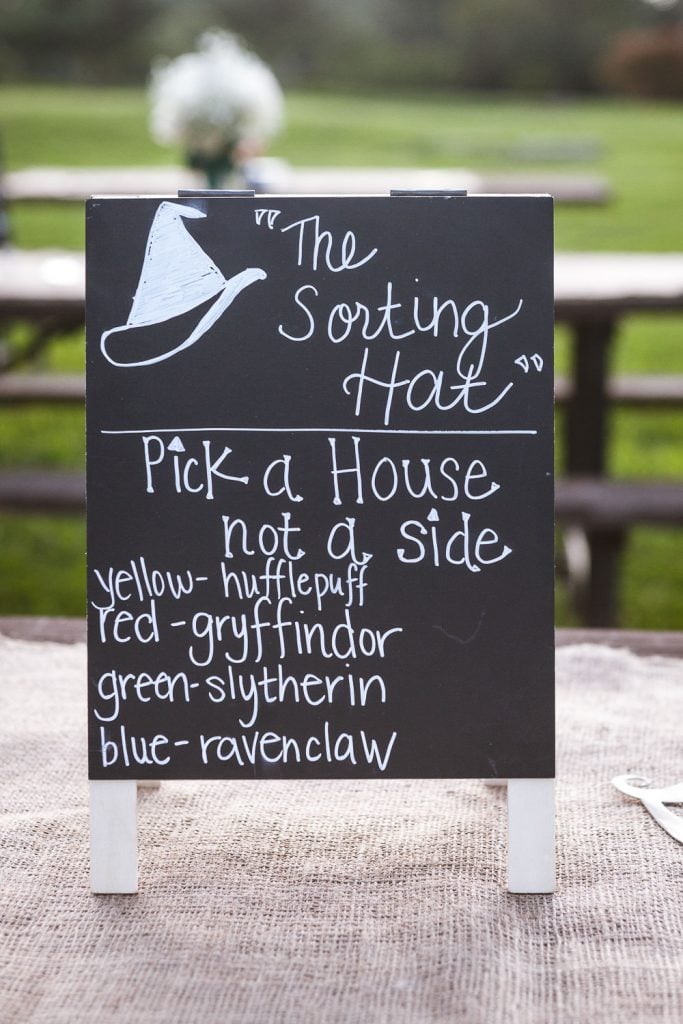 "The
Sorting
Hat"
Pick a House
not a side
yellow- hufflepuff
red-gryffindor
green-slytherin
blue-ravenclaw